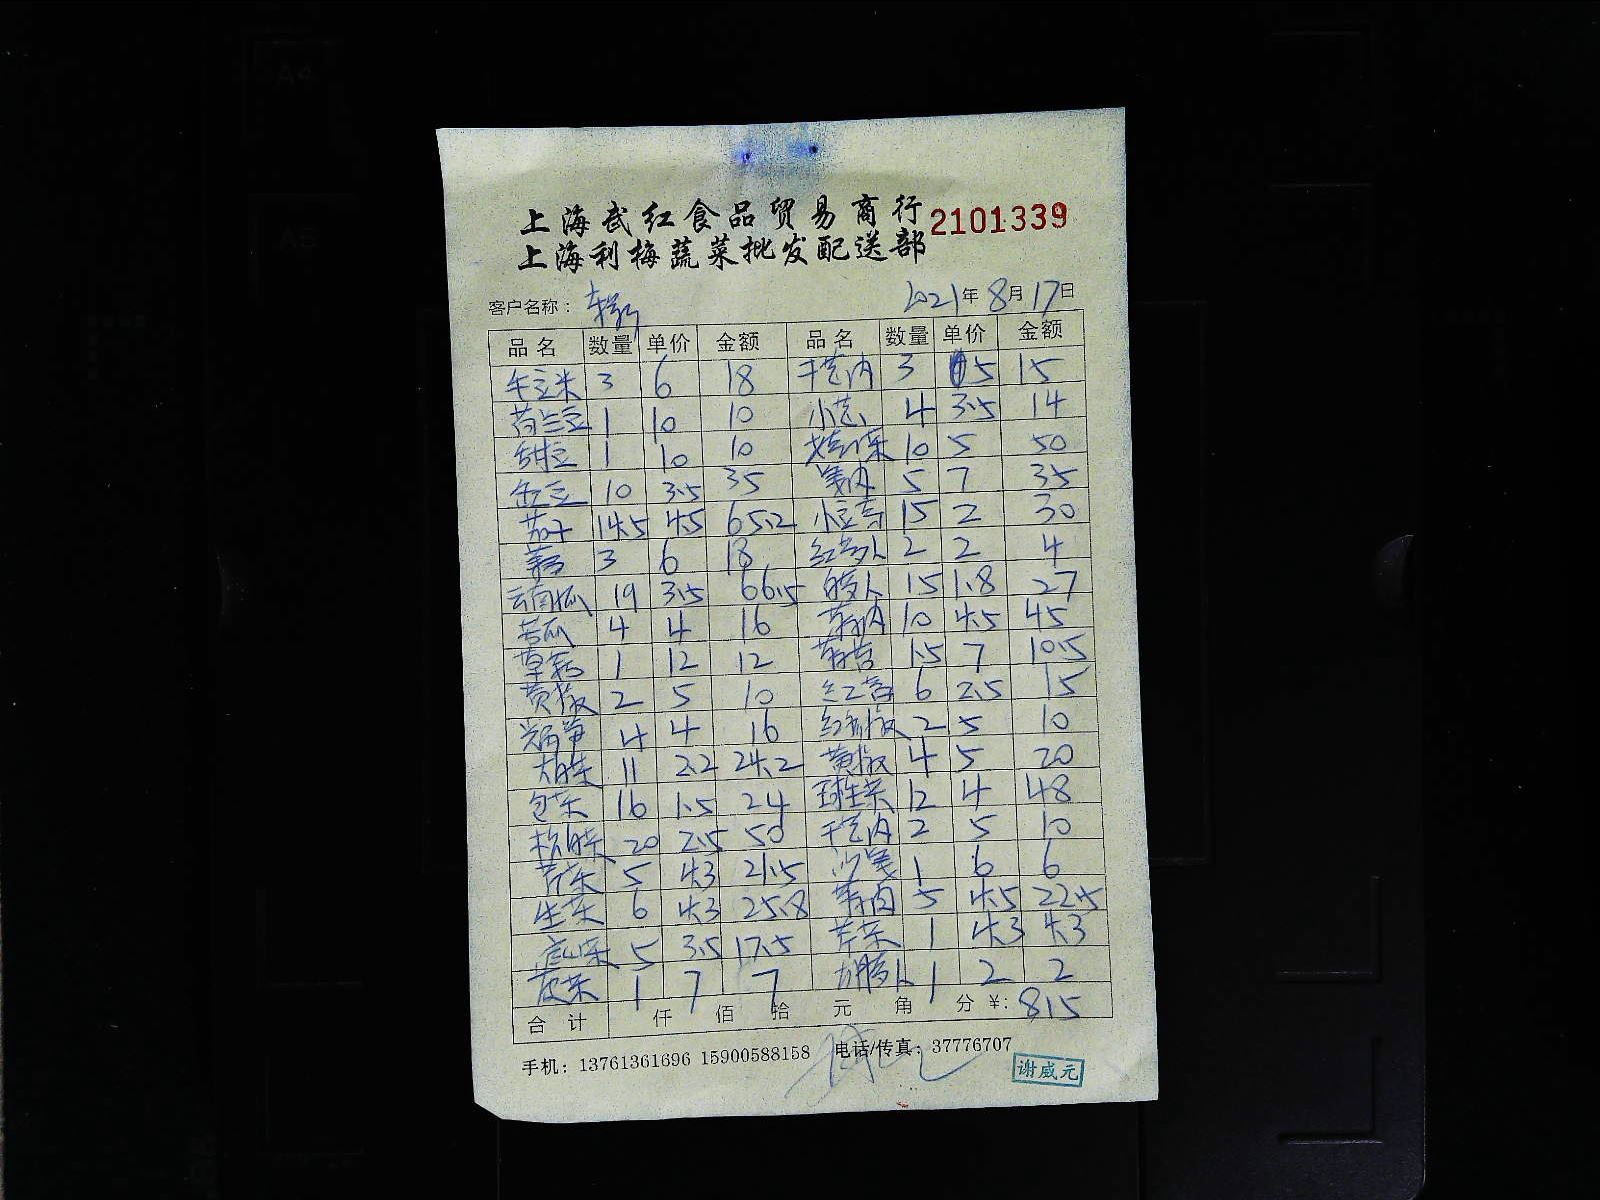 上海武红食品贸易商行 2101339
上海利梅蔬菜批发配送部
客户名称： 2021年8月17日
品名 数量 单价 金额 品名 数量 单价 金额
牛立米 3 6 18 干芑内 3 5 15
荷兰豆 1 10 10 小芑 4 3.5 14
甜豆 1 10 10 10 5 50
缸豆 10 3.5 35 5 7 35
茄子 14.5 4.5 65.2 15 2 30
3 6 18 2 2 4
云南瓜 19 3.5 66.5 白萝卜 15 1.8 27
苦瓜 4 4 16 10 4.5 45
草菇 1 12 12 1.5 7 10.5
黄椒 2 5 10 6 2.5 15
4 4 16 2 5 10
大白菜 11 2.2 24.2 黄椒 4 5 20
包菜 16 1.5 24 球生菜 12 4 48
20 2.5 50 干芑内 2 5 10
芹菜 5 4.3 21.5 1 6 6
生菜 6 4.3 25.8 5 4.5 22.5
5 3.5 17.5 芹菜 1 4.3 4.3
1 7 7 1 2 2
合计 仟 佰 拾 元 角 分 ¥: 815
手机：13761361696 15900588158 电话/传真：37776707
谢威元